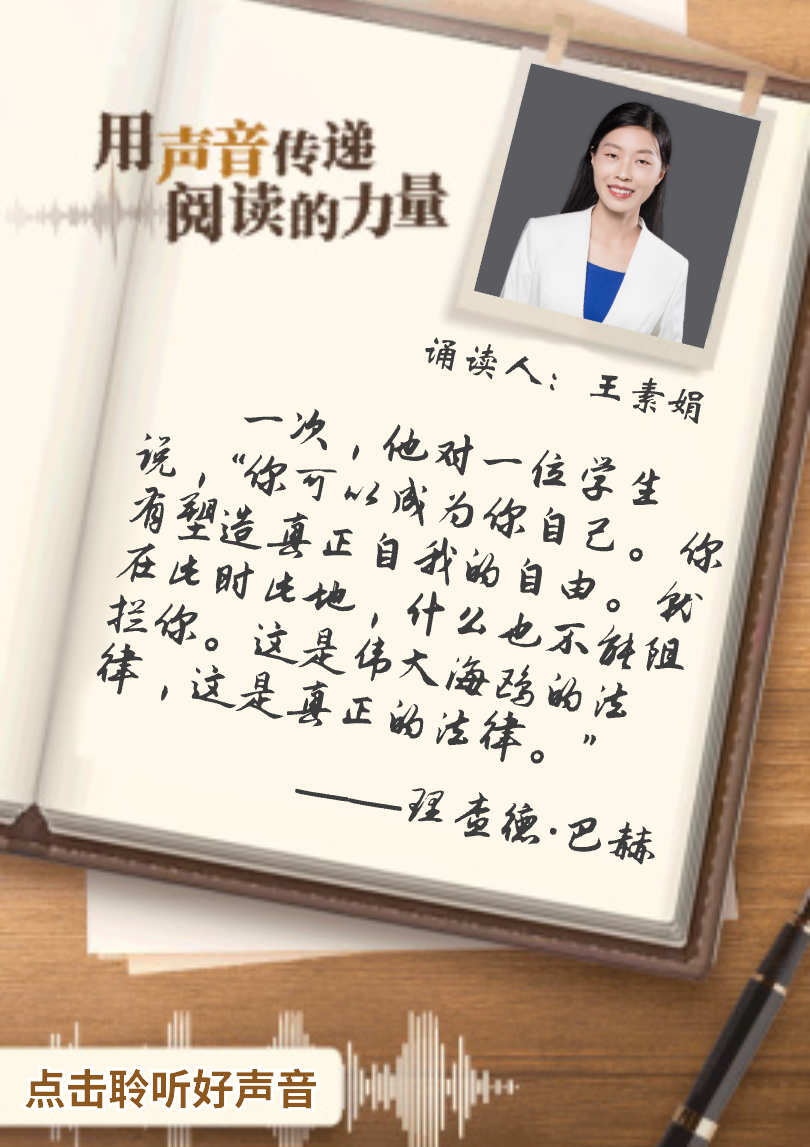 用声音传递
阅读的力量
诵读人：王素娟
一次，他对一位学生
说，“你可以成为你自己。你
有塑造真正自我的自由。就
在此时此地，什么也不能阻
拦你。这是伟大海鸥的法
律，这是真正的法律。”
——理查德·巴赫
点击聆听好声音